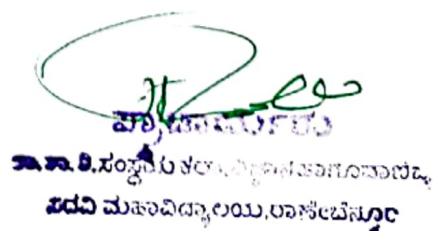 ಪ್ರಾಚಾರ್ಯರು
ರಾ.ತಾ.ಶಿ.ಸಂಸ್ಥೆಯ ಕಲಾ, ವಿಜ್ಞಾನ ಹಾಗೂ ವಾಣಿಜ್ಯ
ಪದವಿ ಮಹಾವಿದ್ಯಾಲಯ, ರಾಣೇಬೆನ್ನೂರ